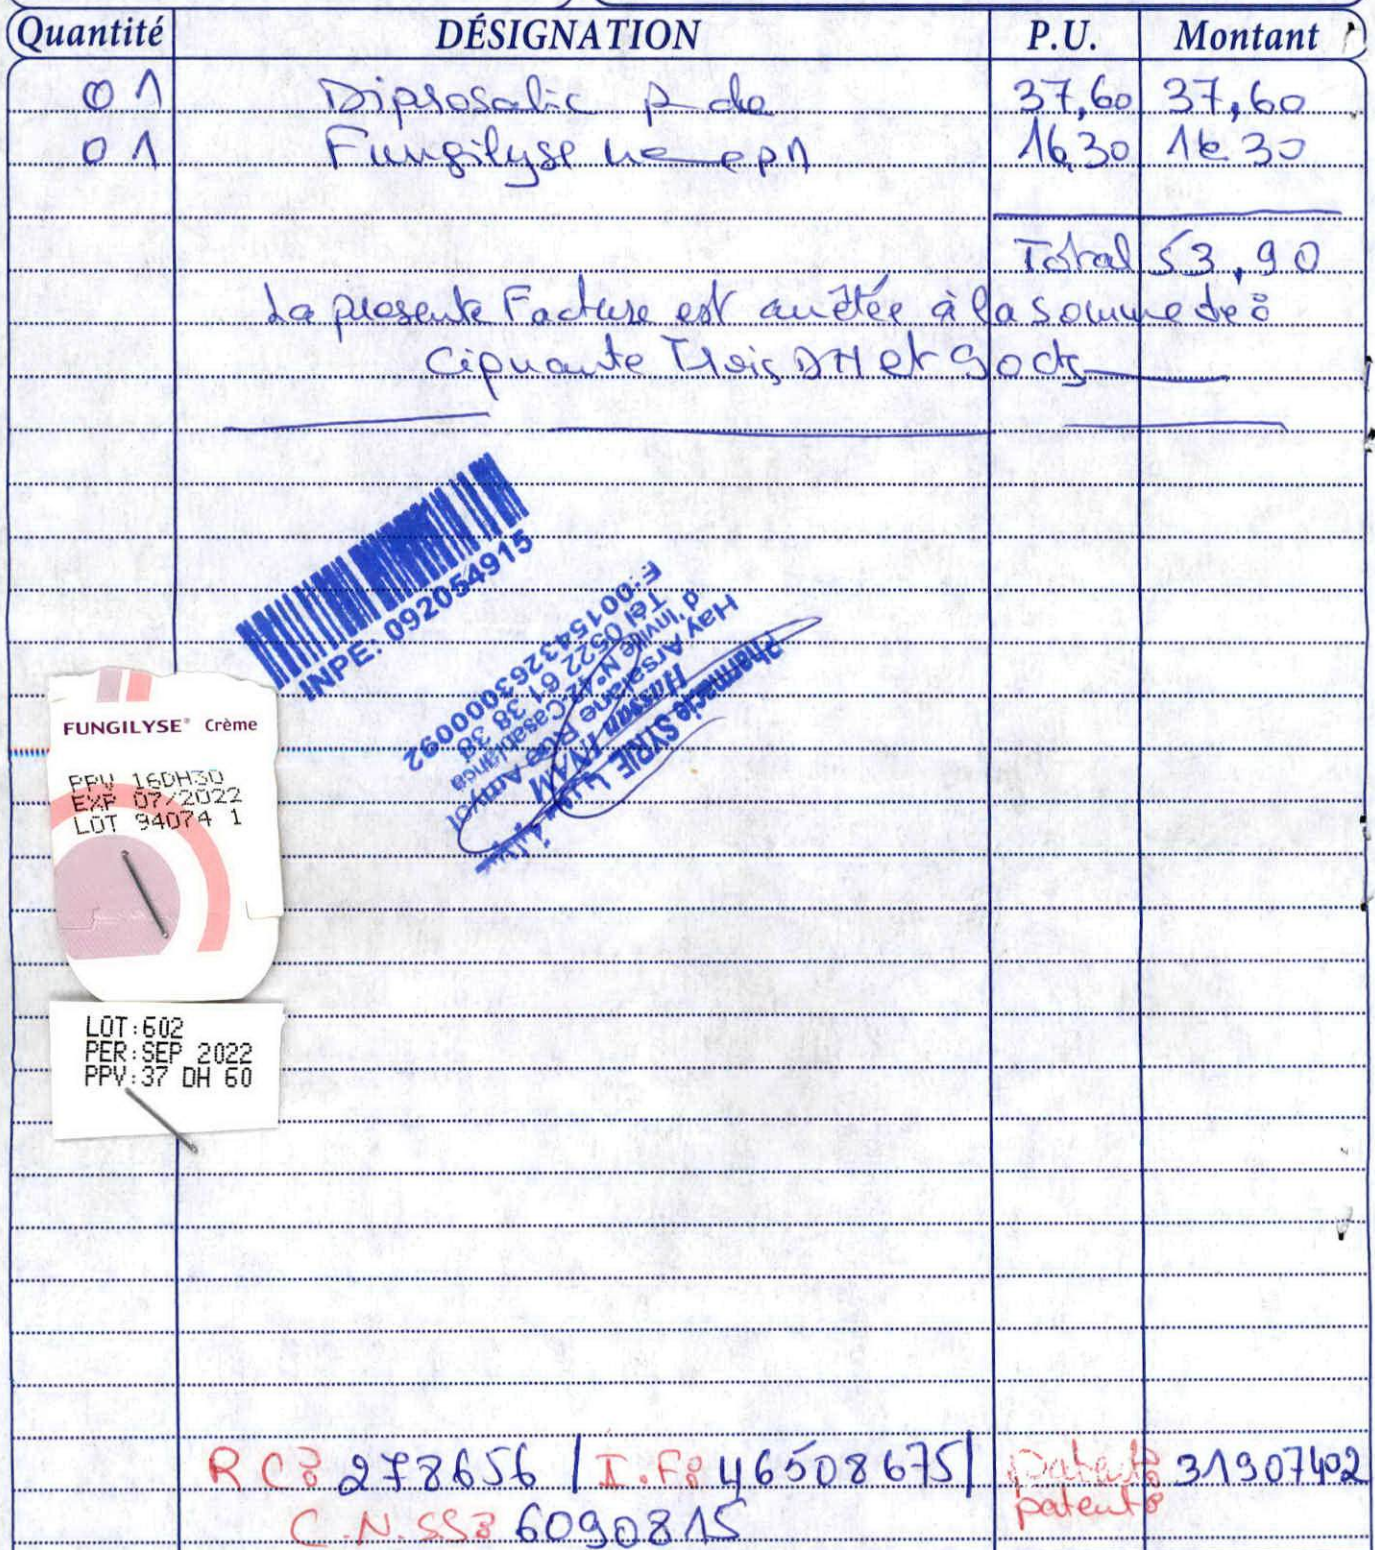 Quantité DÉSIGNATION P.U. Montant
01 Diprosalic pde 37,60 37,60
01 Fungilyse 16,30 16.30
Total 53,90
La presente Facture est arrêtée à la somme de:
Cinquante Trois DH et 90 cts
INPE: 092054915
Pharmacie SYRIE
Hassan INAM
Hay Arsalane Rue Amyot
d'Inville N°42 Casablanca
Tél 0522 61 38 38
E:001543263000092
FUNGILYSE® Crème
PPV 16DH30
EXP 07/2022
LOT 94074 1
LOT:602
PER:SEP 2022
PPV:37 DH 60
RC: 278656 / I.F: 46508675 / Patente: 31907402
patente
C.N.SS: 6090815